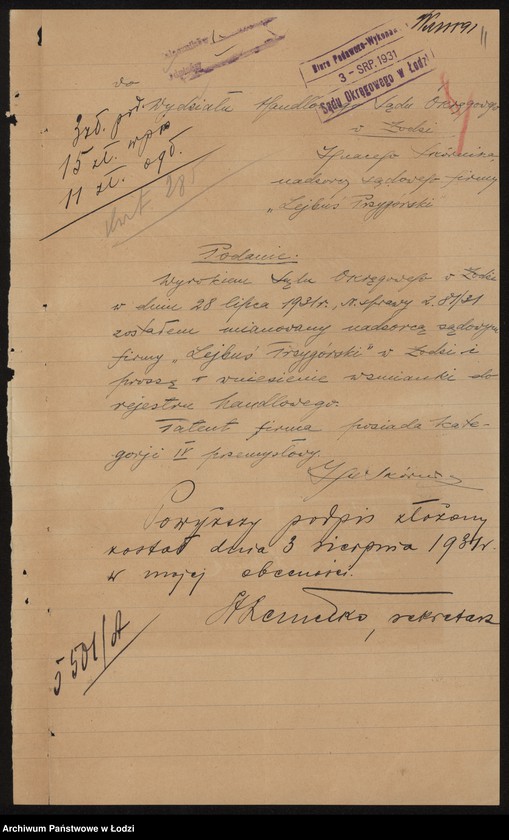 Biuro Podawczo-Wykonaw
3 - SRP. 1931
Sądu Okręgowego w Łodzi
do
Wydziału Handlowego Sądu Okręgowego
w Łodzi
3 zł. pod.
15 zł. wpis
11 zł. ogł.
Ignacego
nadzorcy sądowego firmy
„Lejbuś Przygórski
Podanie.
Wyrokiem Sądu Okręgowego w Łodzi
w dniu 28 lipca 1931r., N. sprawy Z. 87/31
zostałem mianowany nadzorcą sądowym
firmy „Lejbuś Przygórski" w Łodzi i
proszę o wniesienie wzmianki do
rejestru handlowego.
Patent firma posiada kate-
gorji IV przemysłowy.
Powyższy podpis złożony
został dnia 3 sierpnia 1931r.
w mojej obecności.
, sekretarz
5501/A
Archiwum Państwowe w Łodzi